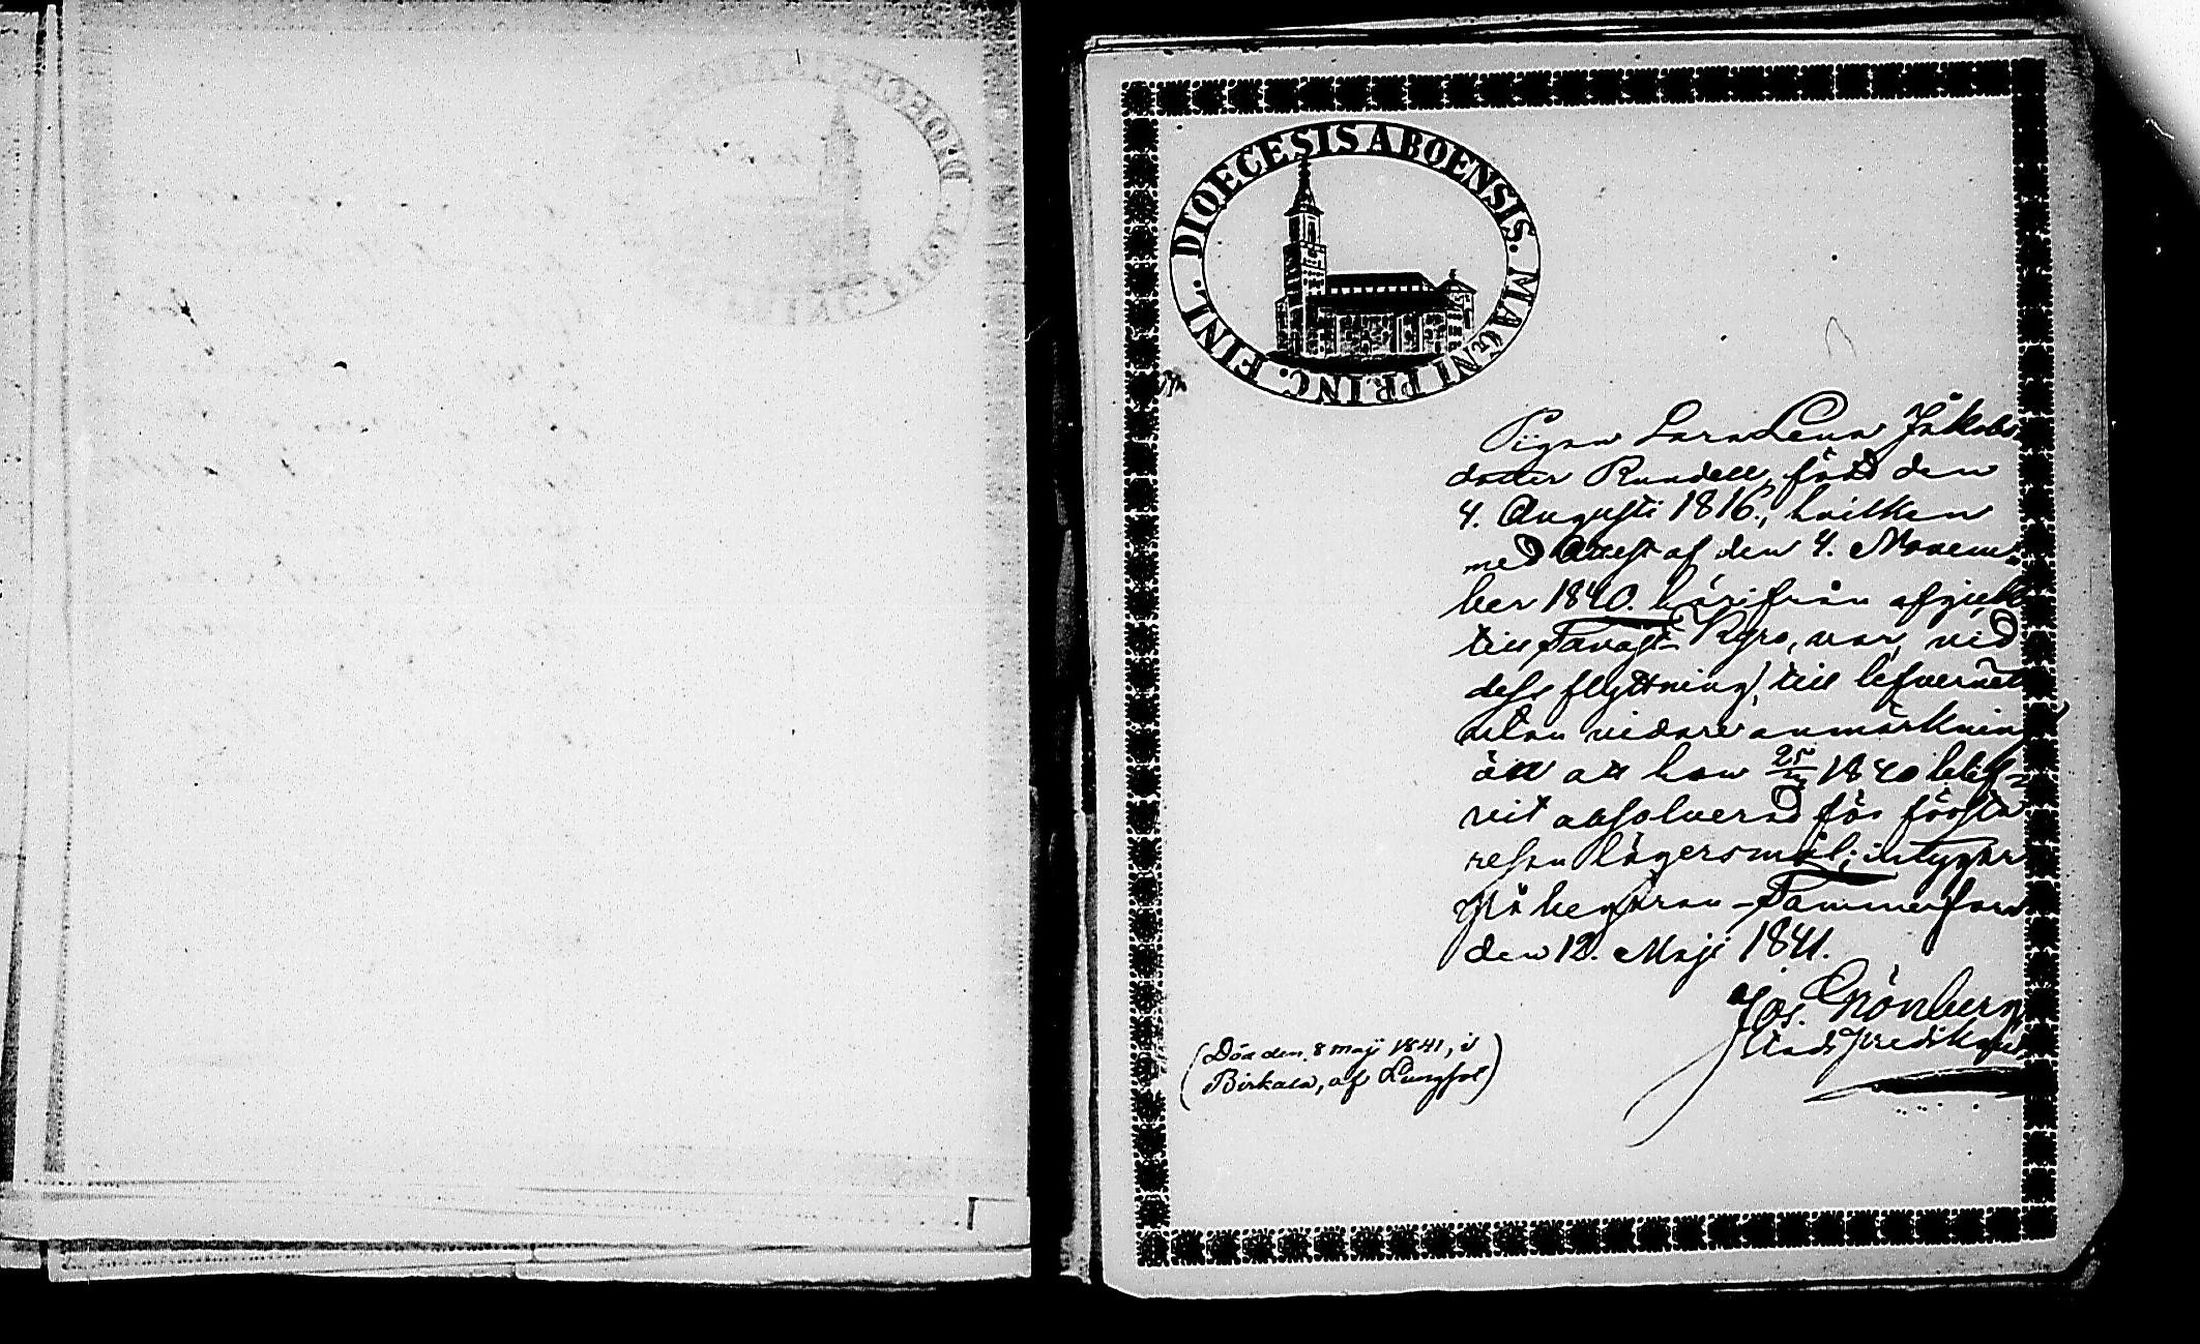 DIOECESIS ABOENSIS. MAGNI PRINC. FINL.
Pigan Sara Lena Jakobs
dotter Rundell, född den
4. Augusti 1816, hvilken
med Attest af den 4. Novem-
ber 1840. härifrån afgick
till Tavast-Kyro, var, vid
dess flyttning, till lefvernet
utan vidare anmärkning
än att hon 25/ 1840 blif-
vit absolverad för första
resan lägersmål; intygar
På begäran - Tammerfors
den 12. Maji 1841.
Jos. Grönberg
Stads Predikant
(Död den 8 maji 1841, i
Birkala, af Lungsot)